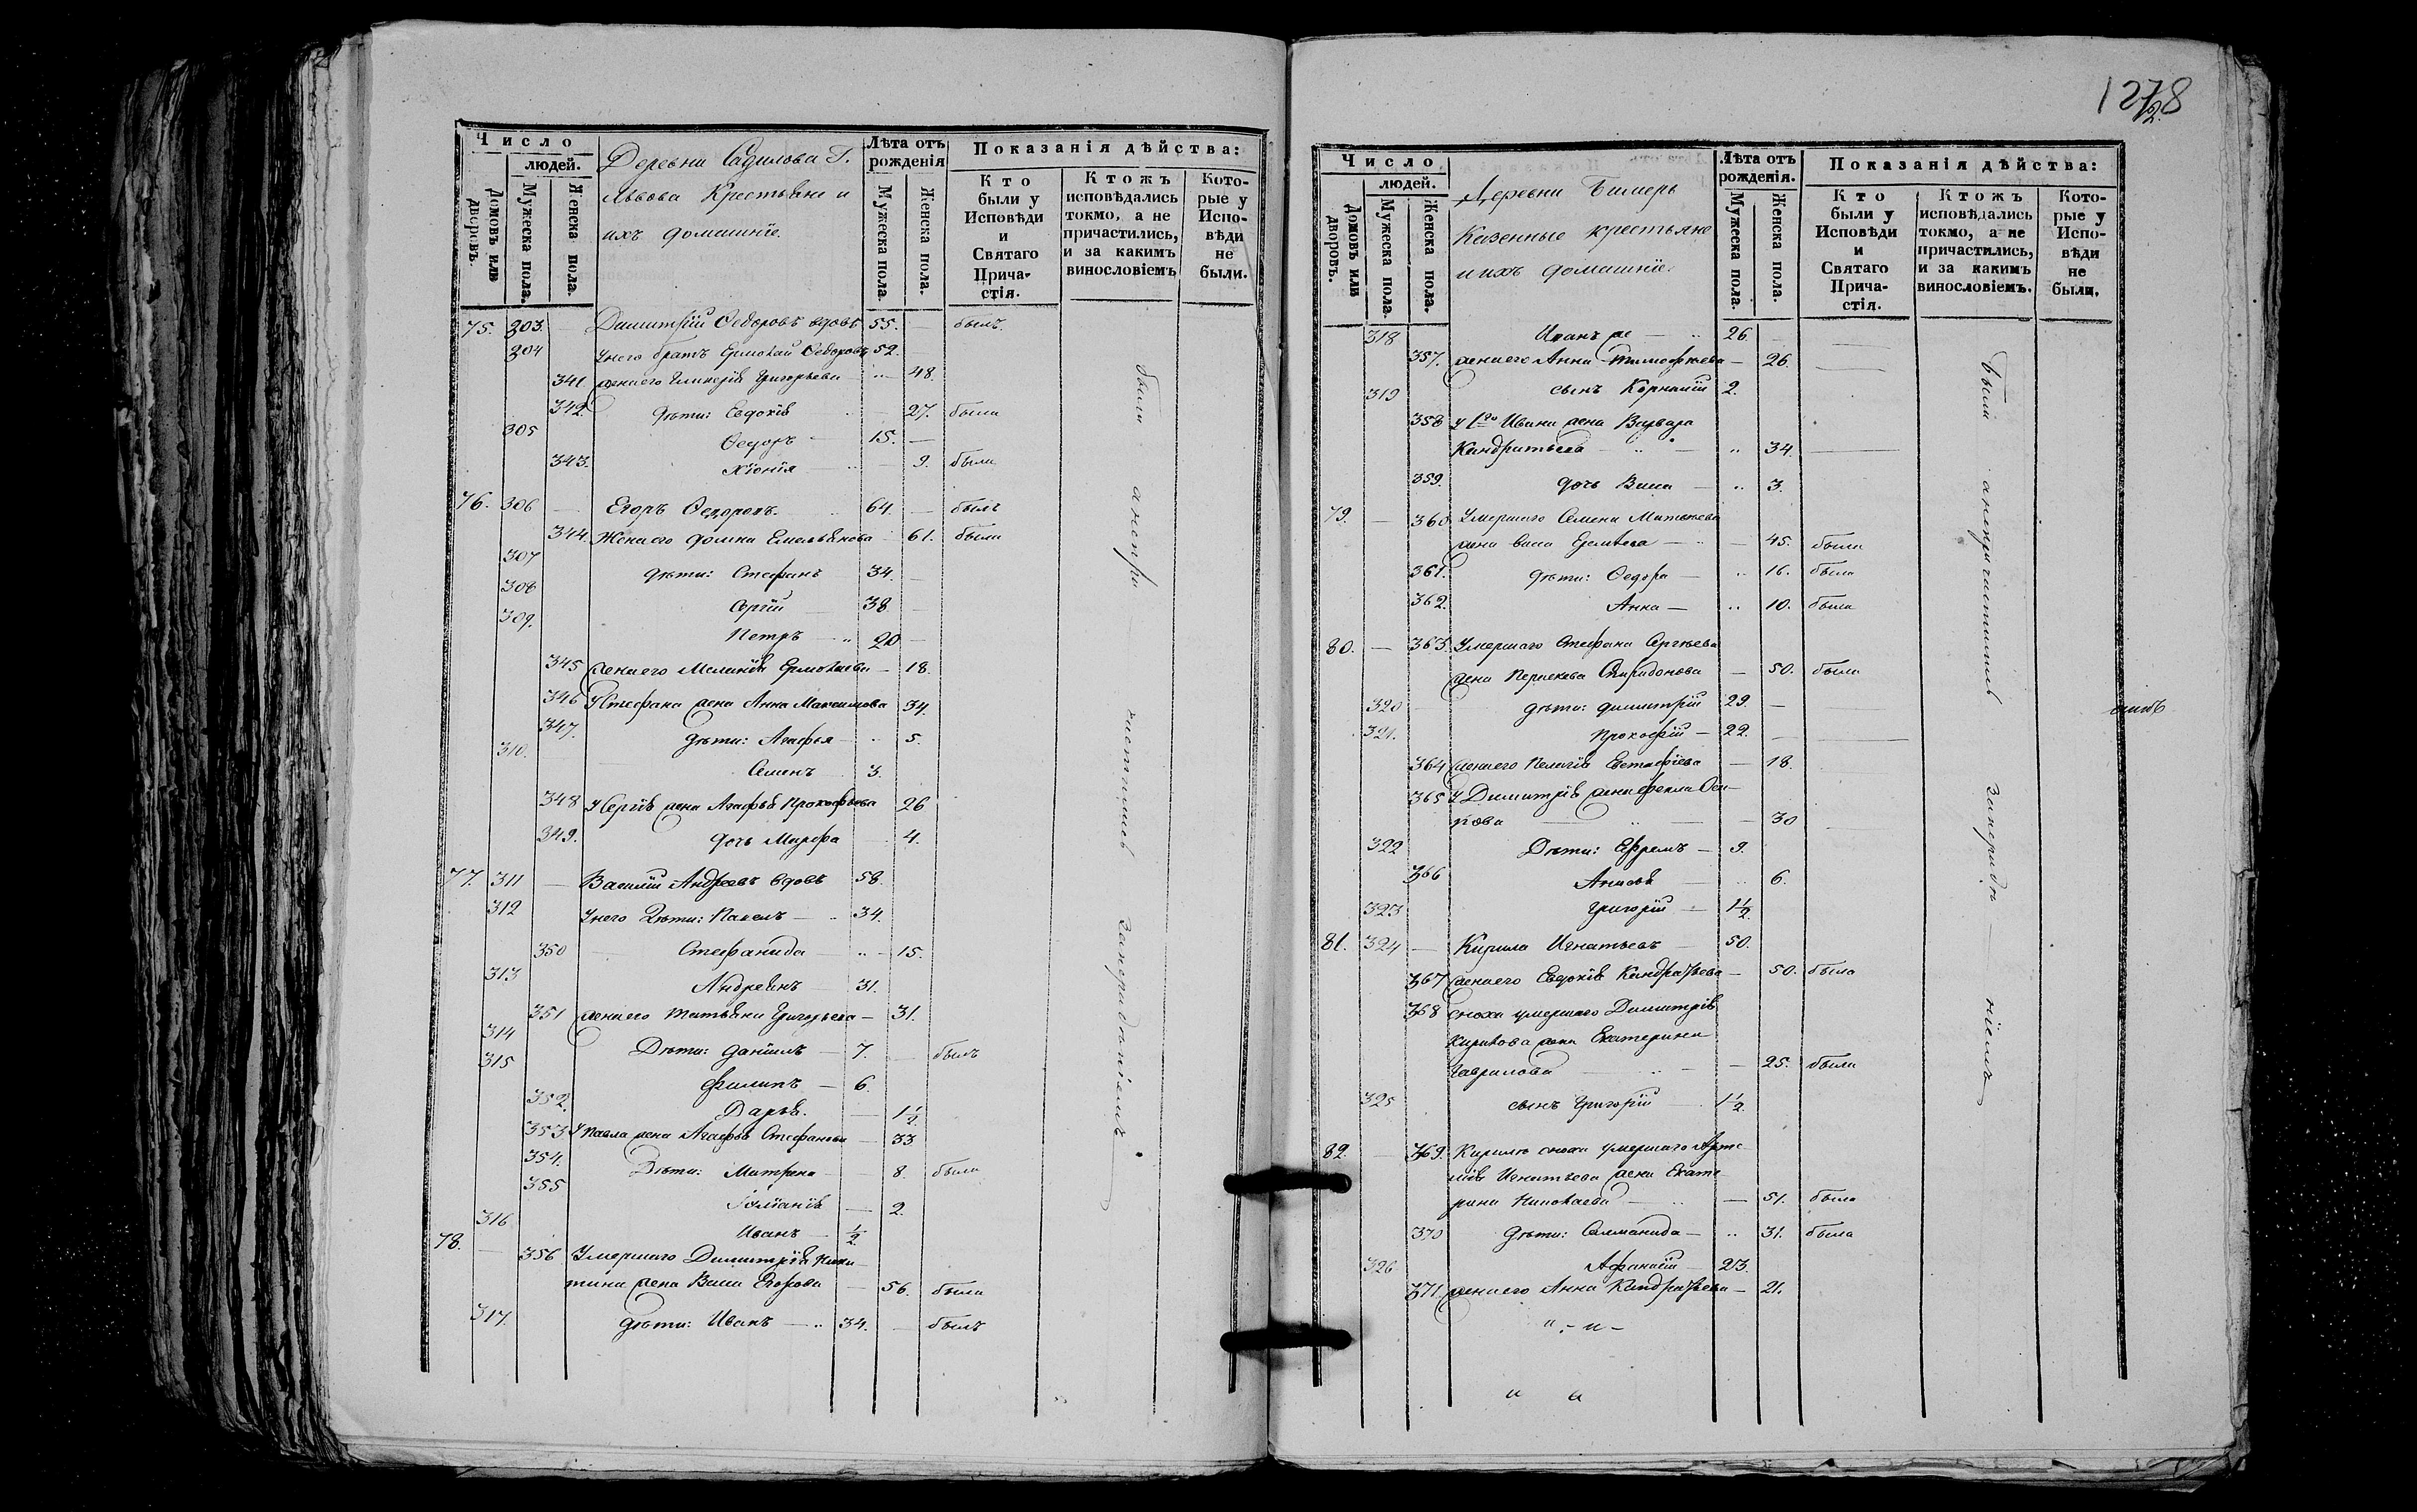 Число
людей.
Домовъ или дворовъ.
Мужеска пола.
Женска пола.
Деревни Садилова Г.
Львова Крестьяне и
ихъ домашніе.
Лѣта отъ рожденія
Мужеска пола.
Женска пола.
Показанія дѣйства:
Кто были у Исповѣди и Святаго Прича-стія.
Ктожъ исповѣдались токмо, а не причастились, и за какимъ винословіемъ
Кото-рые у Испо-вѣди не были.
75. 303. — Димитрій Ѳедоровъ вдовъ 55. — былъ.
304 У него братъ Ермолай Ѳедоровъ 52.
341 жена его Гликерія Григорьева — 48.
342 дѣти: Евдокія — 27. была
305 Ѳедоръ 15. —
343. Хіонія — 9. была
76. 306 — Егоръ Ѳедоровъ. 64. — былъ
344. Жена его Домна Емельянова 61. была
307 дѣти: Стефанъ 34. —
308 Сергій 38 —
309. Петръ 20 —
345 жена его Меланія Ермолаева — 18.
346 У Стефана жена Анна Максимова 34.
347. дѣти: Агафья 5.
310. Семенъ 3.
348 У Сергія жена Агафья Прокофьева 26
349. дочь Марфа 4.
77. 311 — Василій Андреевъ вдовъ 58.
312 У него дѣти: Павелъ — 34.
350 Стефанида — 15.
313 Андреянъ 31.
351 жена его Татьяна Григорьева — 31.
314 Дѣти: Даніилъ — 7. — былъ
315 Филипъ — 6.
352. Дарья. — 1 1/2
353 У Павла жена Агафья Стефанова — 33
354. Дѣти: Матрона 8. была
355 Іуліанія — 2.
316 Иванъ 1/2
78. — 356 Умершаго Димитрія Ники
тина жена Васса Егорова — 56. была
317. дѣти: Иванъ — 34. — былъ
были а не при частились за нерадѣніемъ
127/28
Число
людей.
Домовъ или дворовъ.
Мужеска пола.
Женска пола.
Деревни Бимерь
Казенные крестьяне
и ихъ домашніе.
Лѣта отъ рожденія.
Мужеска пола.
Женска пола.
Показанія дѣйства:
Кто были у Исповѣди и Святаго Прича-стія.
Ктожъ исповѣдались токмо, а не причастились, и за какимъ винословіемъ.
Кото-рые у Испо-вѣди не были.
318 Иванъ же — 26.
357. жена его Анна Тимофѣева — 26.
319 сынъ Корнилій 2.
358 у 1го Ивана жена Варвара
Кандратьева — 34.
359. дочь Васса — 3.
79. — 360 Умершаго Семена Матвѣева
жена Васса — 45. была
361. дѣти: Ѳедора — 16. была
362. Анна — 10. была
80. — 363 Умершаго Стефана Сергѣева
жена Спиридонова — 50. была
320 дѣти: Димитрій 29. —
321. Прокофій — 22. —
364 жена его Пелагія Евстафіева — 18.
365 У Димитрія жена Фекла Оси-
пова — 30
322 Дѣти: Ефремъ — 9.
366 Анисья — 6.
323 Григорій — 1 1/2.
81. 324 — Кирила Игнатьевъ 50.
367 жена его Евдокія Кандратьева — 50. была
368 сноха умершаго Димитрія
Кирилова жена Екатерина
Гаврилова — 25. была
325 сынъ Григорій — 1 1/2.
82. — 369. Кирилѣ сноха умершаго Арте-
мія Игнатьева жена Екате-
рина Николаева — 51. была
370 дѣти: Саломанида — 31. была
326 Афанасій — 23.
371. жена его Анна Кандратьева — 21.
были а не причастились за нерадѣ — ніемъ